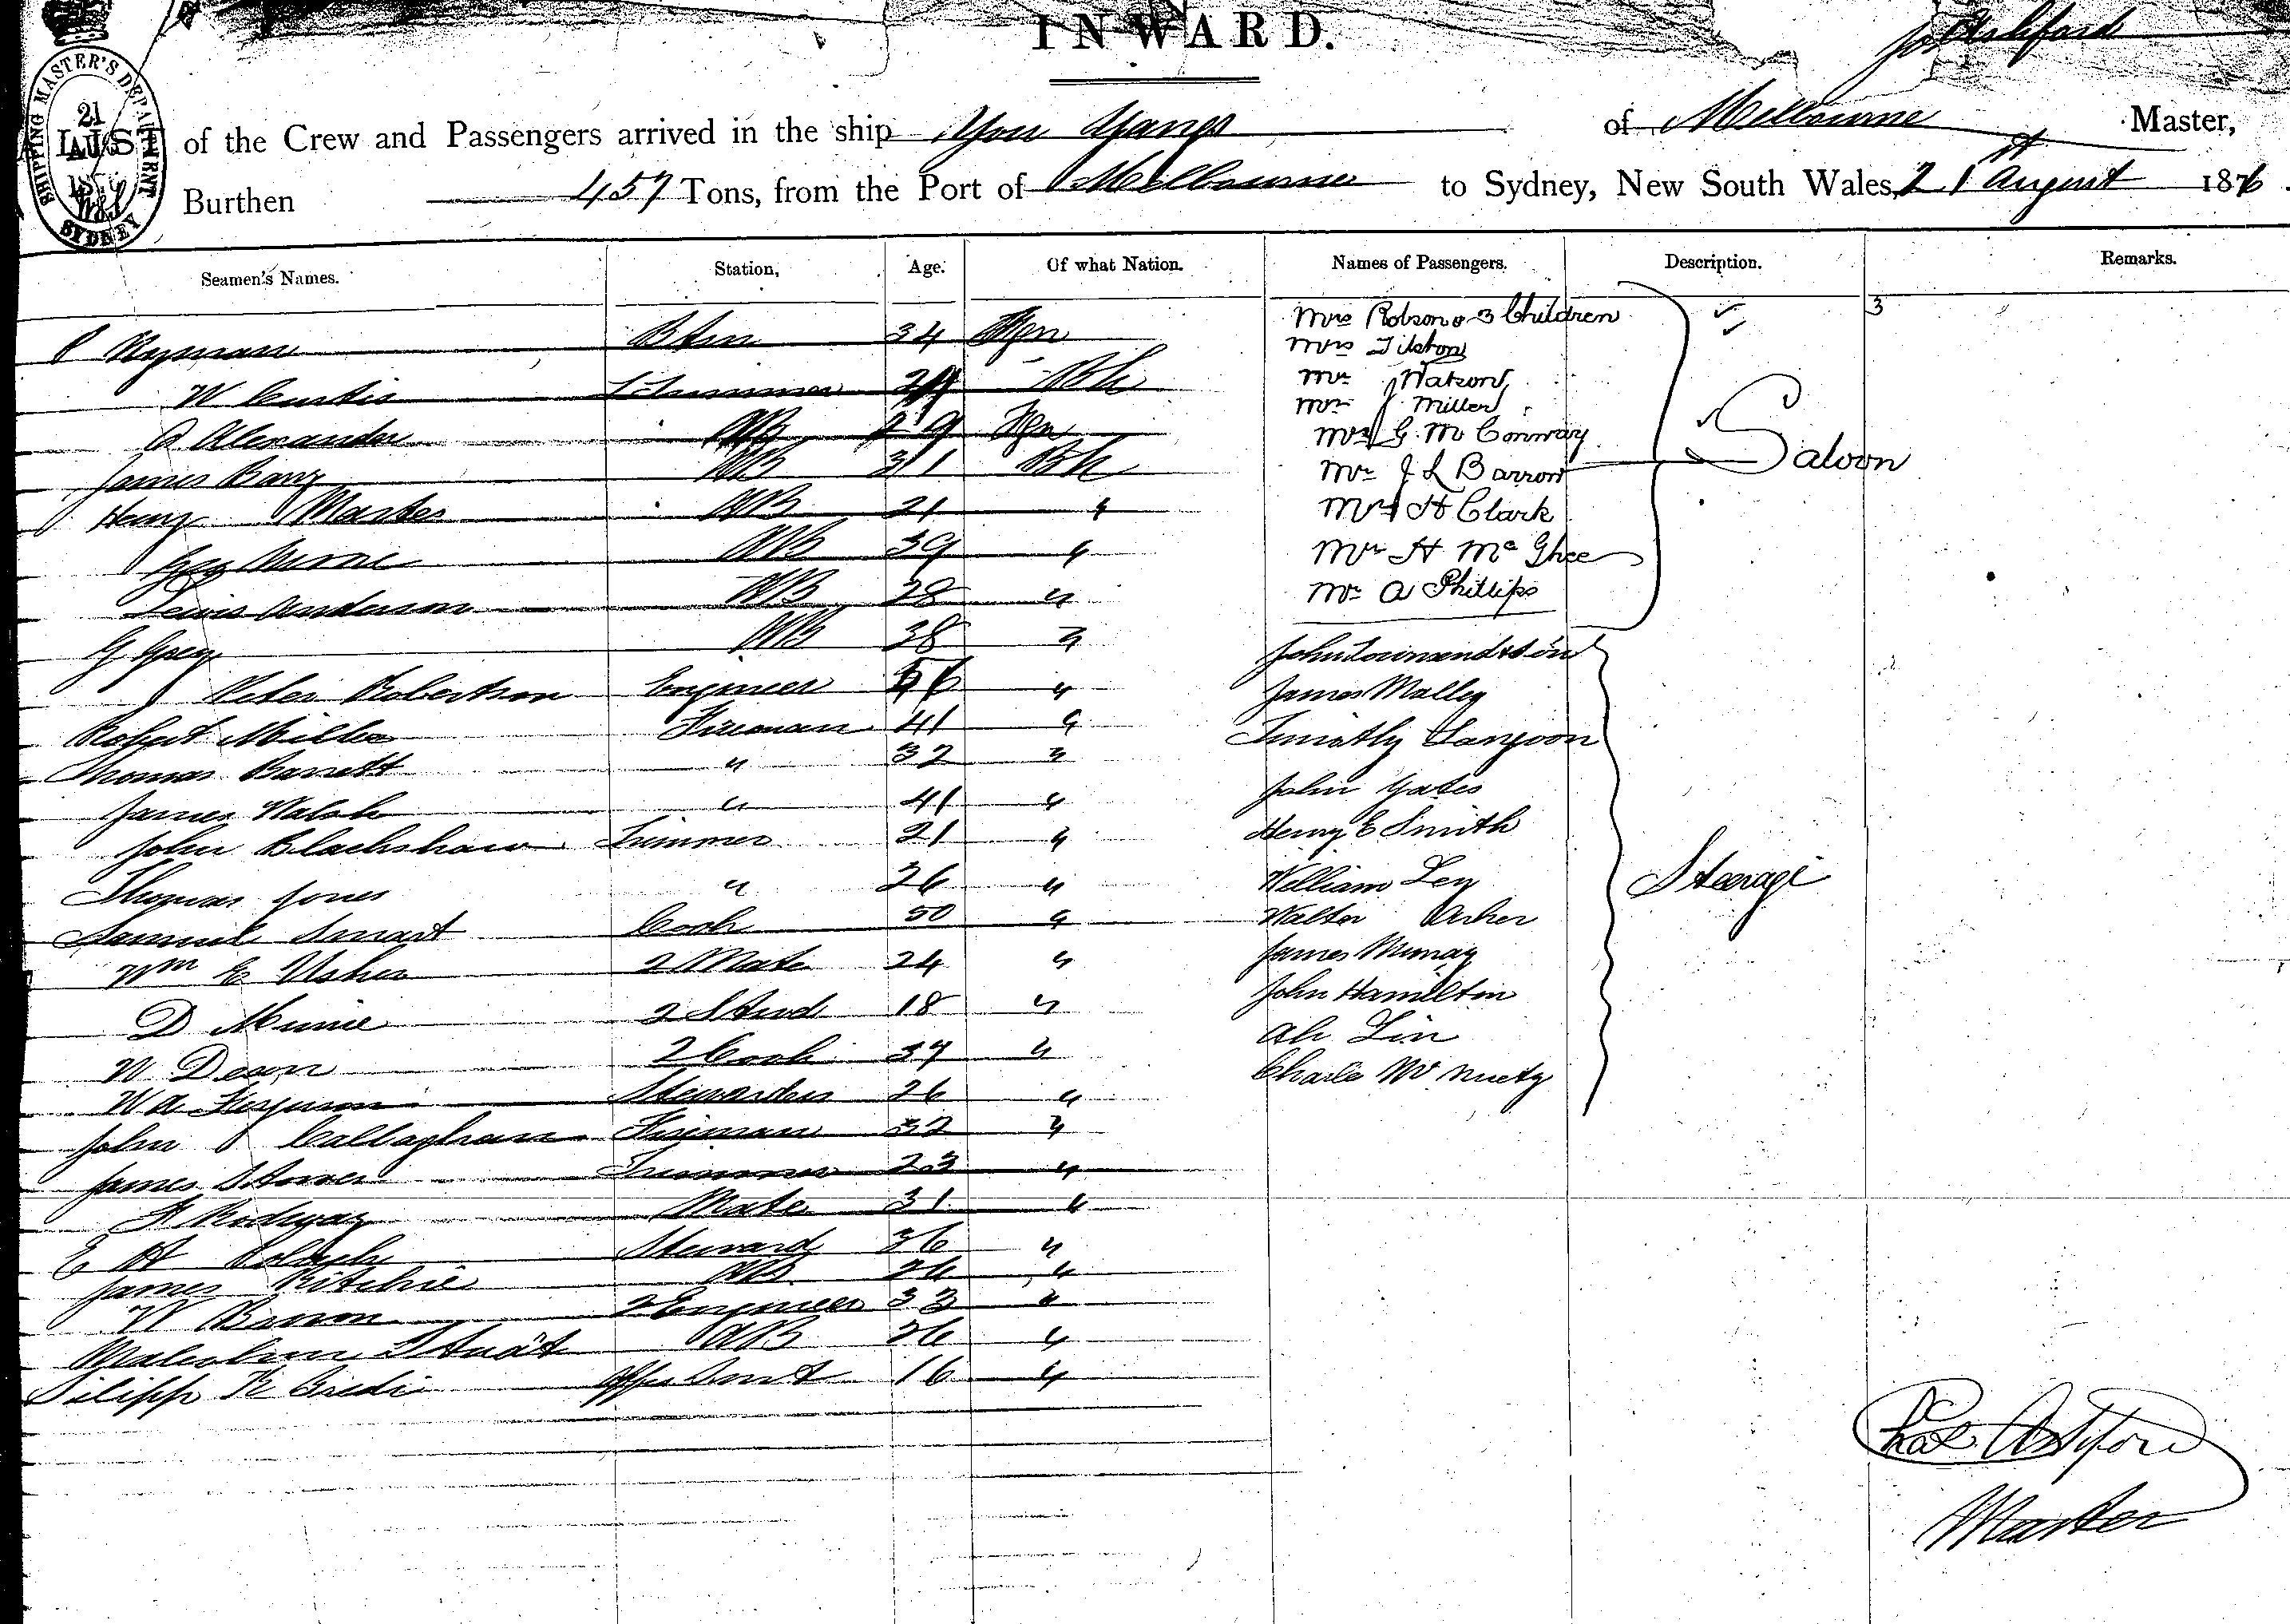 INWARD.
Jas Ashford
SHIPPING MASTER'S DEPARTMENT
21
AUG
SYDNEY
LIST of the Crew and Passengers arrived in the ship You Yangs of Melbourne Master,
Burthen 457 Tons, from the Port of Melbourne to Sydney, New South Wales, 21st August 1876.
Seamen's Names. Station, Age. Of what Nation. Names of Passengers. Description. Remarks.
P Nyman 34
W Curtis Trimmer Bh
A Alexander AB 29
James Barry AB 31 Bh
Henry Master AB 21 "
AB 39 "
Lewis Anderson AB 28 "
G Grey AB 38 "
Peter Robertson Engineer "
Robert Miller Fireman 41 "
Thomas Barrett " 32 "
James Walsh " 41 "
John Blackshaw Trimmer 21 "
Thomas Jones " 26 "
Samuel Smart Cook 50 "
Wm E Usher 2 Mate 24 "
D Munie 2 Stwd 18 "
W Dean 2 Cook 37 "
W A Ferguson Stewardess 26 "
John Callaghan Fireman 32 "
James Stower Trimmer 23 "
Mate 31 "
E H Steward 36 "
James Ritchie AB 26 "
W Barron 2 Engineer 33 "
Malcolm Stuart AB 26 "
16 "
Mrs Robson & 3 Children
Mrs Tilston
Mr J Watson
Mr J Miller
Mr G. Mc Conway
Mr J L Barrow
Mr H Clark
Mr H Mc Ghee
Mr A Phillips
Saloon
3
John Townsend & Son
James Malley
Timothy
John Yates
Henry E Smith
William Ley
Walter Archer
James Murray
John Hamilton
Ah Lin
Steerage
Chas Ashford
Master